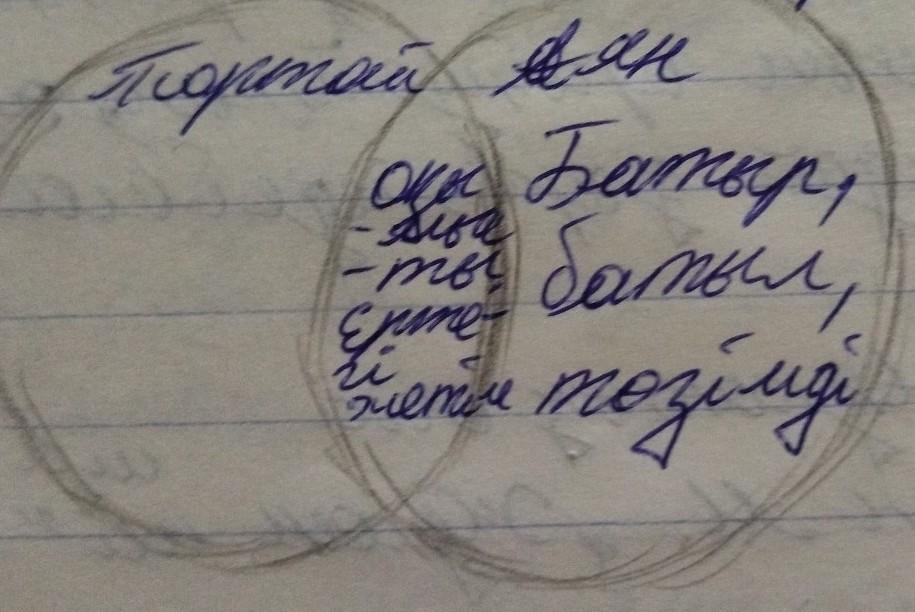 Тортай Аян
оқы
-лыа
-ты
Ерте-
гі
жетім
Батыр,
батыл,
төзімді